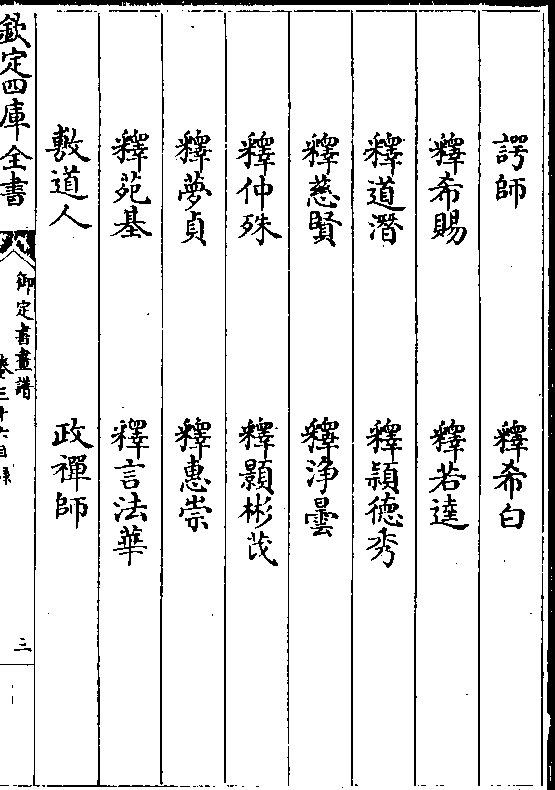 諤師 釋希白
釋希賜 釋若逵
釋道潛 釋頴德秀
釋慈賢 釋浄曇
釋仲殊 釋顥彬茂
釋夢貞 釋惠崇
釋苑基 釋言法華
敷道人 政禪師
欽定四庫全書 御定書畫譜 卷三十六目錄 三